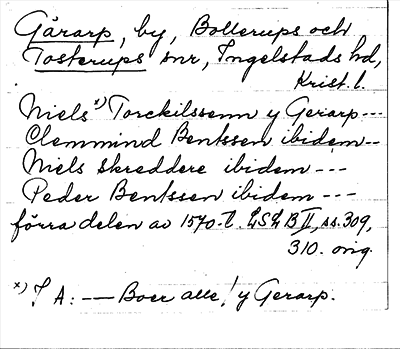 Gärarp, by, Bollerups och
Tosterups snr, Ingelstads hd,
Krist. l.
Niels x) Torckilssenn y Gerarp ---
Clemmind Bentssen ibidem --
Niels skreddere ibidem ---
Peder Bentssen ibidem ---
förra delen av 1570-t. LSL B II, ss. 309,
310. orig.
x) I A: -- Boer alle! y Gerarp.